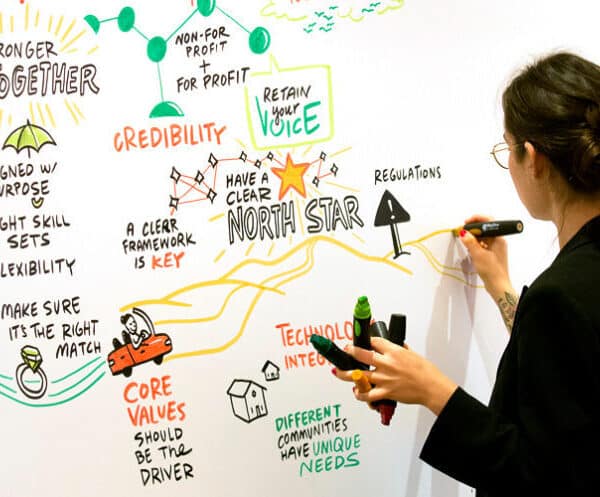 TOGETHER
CREDIBILITY
NON-FOR
PROFIT
+
FOR PROFIT
RETAIN
your
VOICE
PURPOSE
SKILL
SETS
FLEXIBILITY
MAKE SURE
IT'S THE RIGHT
MATCH
CREDIBILITY
A CLEAR
FRAMEWORK
IS KEY
HAVE A
CLEAR
NORTH STAR
REGULATIONS
!
CORE
VALUES
SHOULD
BE THE
DRIVER
DIFFERENT
COMMUNITIES
HAVE UNIQUE
NEEDS